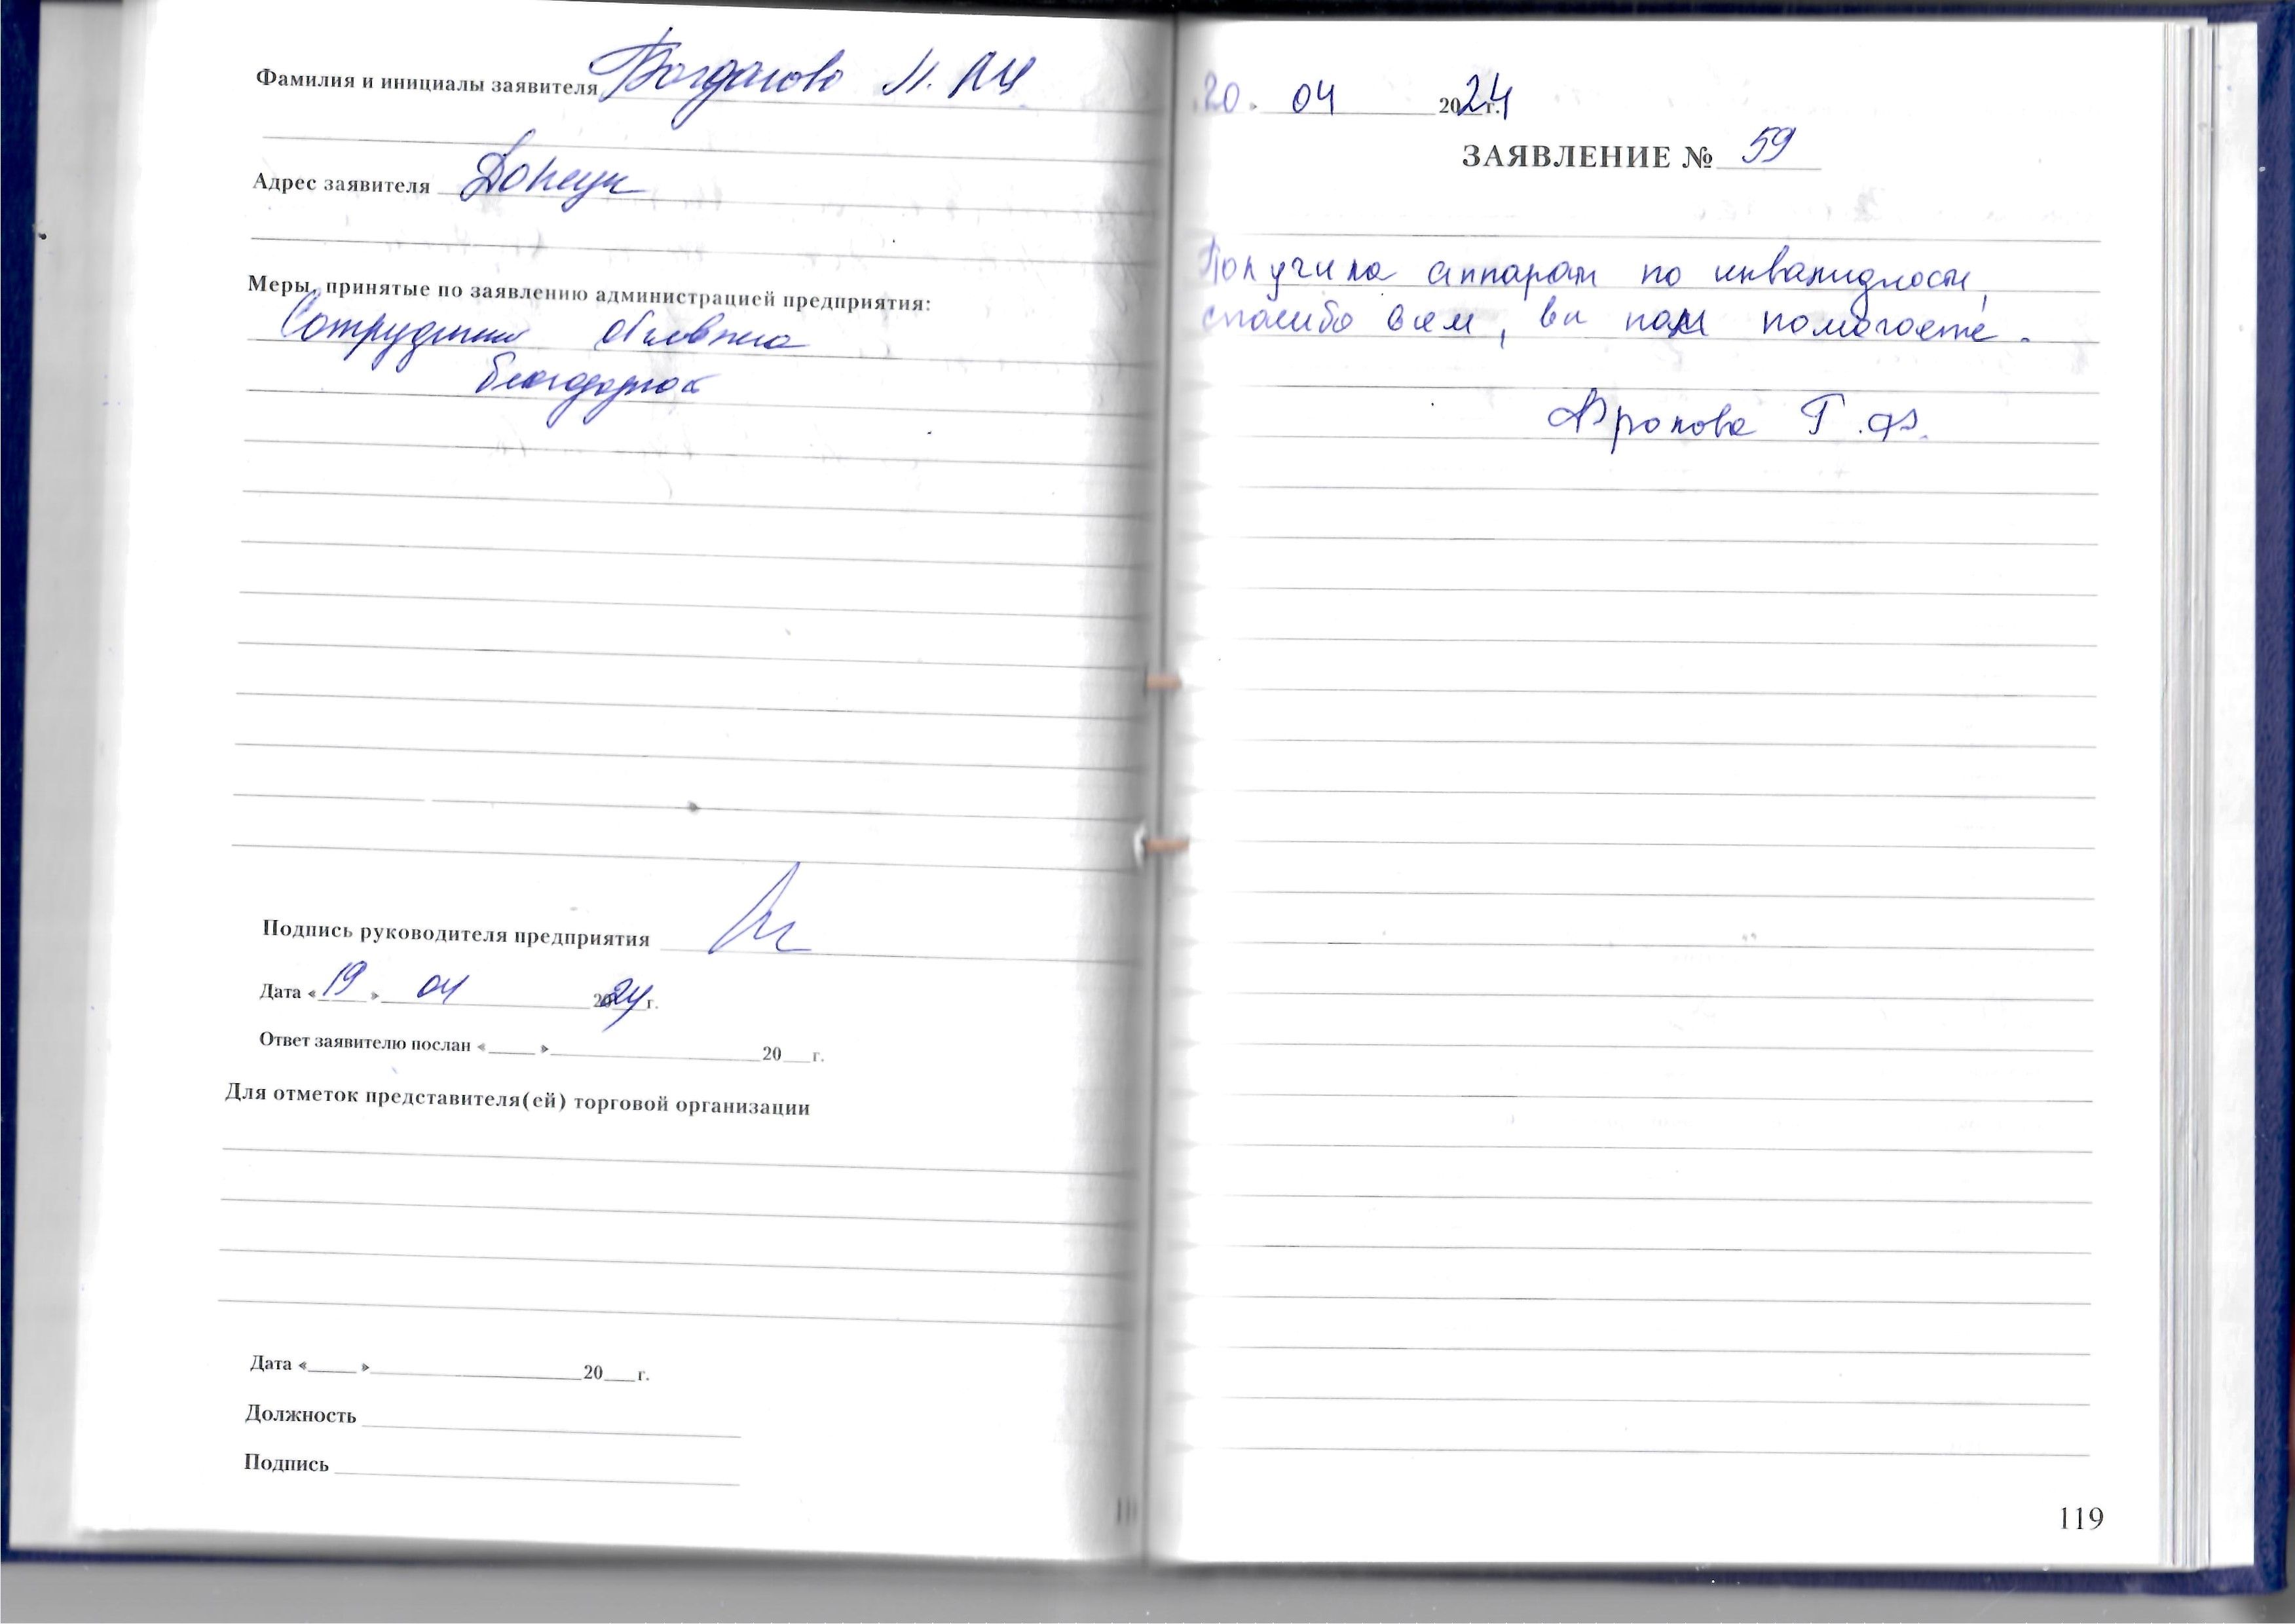 Фамилия и инициалы заявителя Богданова М.
Адрес заявителя Донецк
Меры, принятые по заявлению администрацией предприятия:
Сотруднику объявлена
благодарность
Подпись руководителя предприятия
Дата «19» 04 2024г.
Ответ заявителю послан «____» ____ 20__г.
Для отметок представителя(ей) торговой организации
Дата «____» ____ 20__г.
Должность
Подпись
20. 04 2024г.
ЗАЯВЛЕНИЕ № 59
Получила аппарат по инвалидности,
спасибо всем, вы нам помогаете.
Г.Ф.
119